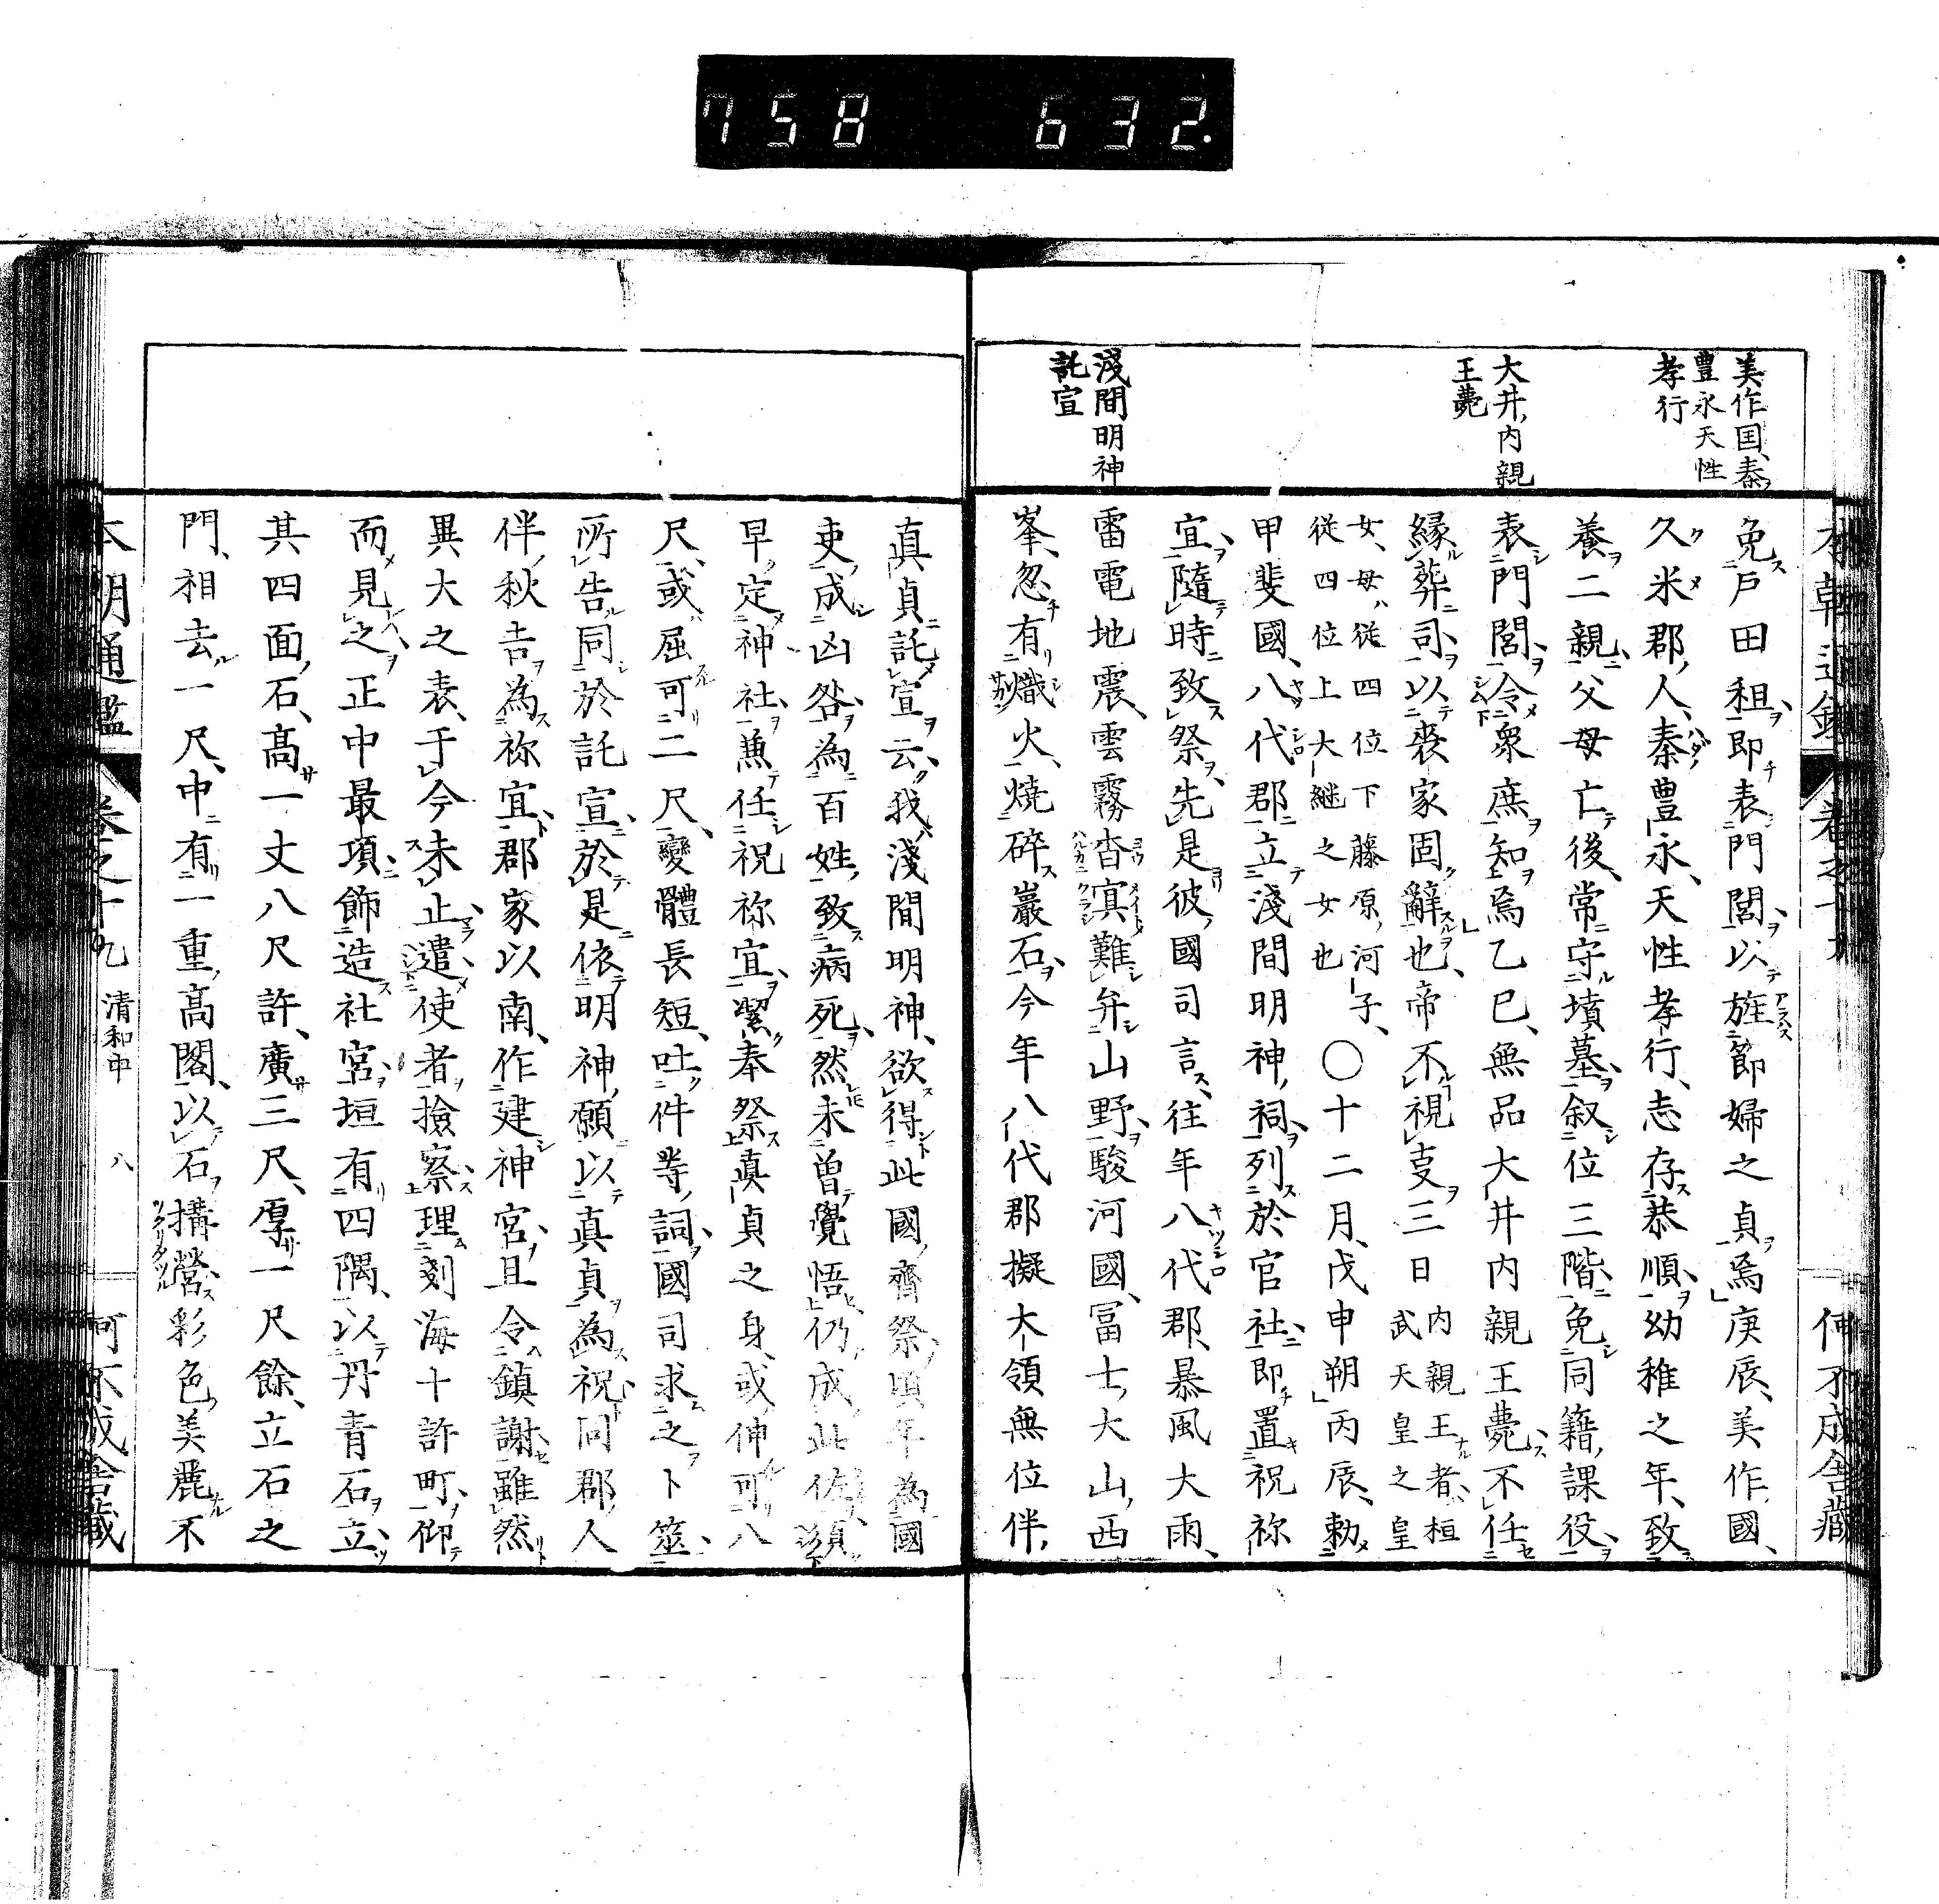 758 632.
美作国秦
豊永天性
孝行
大井内親
王薨
淺間明神
託宣
免戸田租即表門閭以旌節婦之貞焉庚辰美作國
久米郡人秦豊永天性孝行志存恭順幼稚之年致
養二親父母亡後常守墳墓叙位三階免同籍課役
表門閭令衆庶知焉乙巳無品大井内親王薨不任
縁葬司以喪家固辭也帝不視事三日内親王者桓武天皇之皇
女母從四位下藤原河子
從四位上大継之女也〇十二月戊申朔丙辰勅
甲斐國八代郡立淺間明神祠列於官社即置祝祢
宜隨時致祭先是彼國司言往年八代郡暴風大雨
雷電地震雲霧杳冥難弁山野駿河國冨士大山西
峯忽有熾火燒碎巖石今年八代郡擬大領無位伴
真貞託宣云我淺間明神欲得此國齊祭頃年為國
吏成凶咎為百姓致病死然未曽覺悟仍成此恠須
早定神社兼任祝祢宜潔奉祭真貞之身或伸可八
尺或屈可二尺變體長短吐件等詞國司求之卜筮
所告同於託宣於是依明神願以真貞為祝同郡人
伴秋吉為祢宜郡家以南作建神宮且令鎮謝雖然
異大之表于今未止遣使者撿察埋剗海十許町仰
而見之正中最頂飾造社宮垣有四隅以丹青石立
其四面石高一丈八尺許廣三尺厚一尺餘立石之
門相去一尺中有一重高閣以石搆營彩色美麗不
本朝通鑑 卷之十九 清和中 八 何不成舎藏